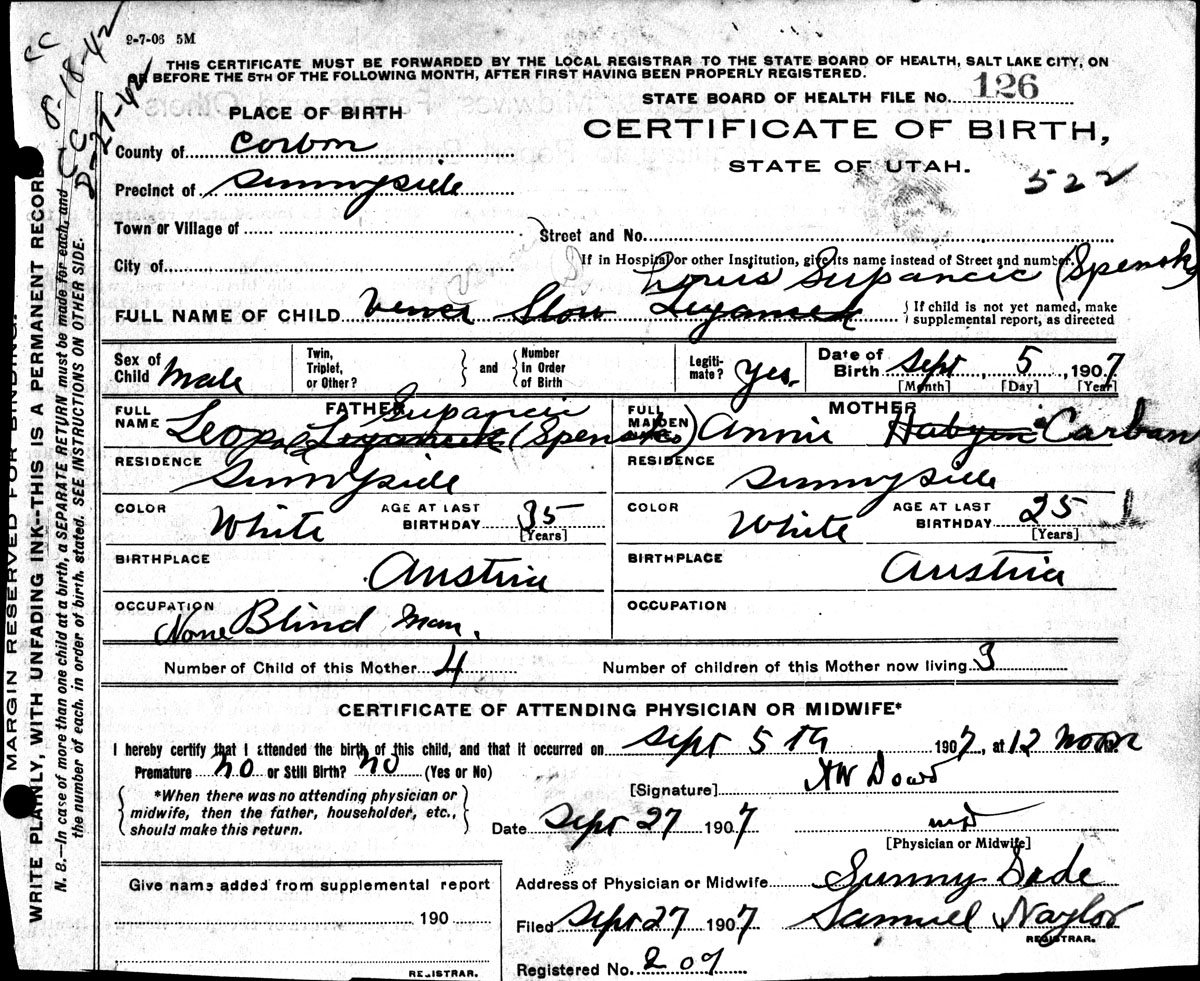 9-7-06 5M
CC 8-18-42
CC D-27-42
THIS CERTIFICATE MUST BE FORWARDED BY THE LOCAL REGISTRAR TO THE STATE BOARD OF HEALTH, SALT LAKE CITY, ON
OR BEFORE THE 5TH OF THE FOLLOWING MONTH, AFTER FIRST HAVING BEEN PROPERLY REGISTERED.
STATE BOARD OF HEALTH FILE No. 126
PLACE OF BIRTH
CERTIFICATE OF BIRTH,
County of Corbon
STATE OF UTAH.
522
Precinct of Sunnyside
Town or Village of
Street and No.
City of
If in Hospital or other Institution, give its name instead of Street and number.
Louis Supancic (Spensko
FULL NAME OF CHILD
If child is not yet named, make
supplemental report, as directed
Sex of Child Male
Twin, Triplet, or Other?
and
Number In Order of Birth
Legiti- mate? Yes
Date of Birth Sept 5, 1907
[Month] [Day] [Year]
FATHER
FULL NAME Leopal Supancic (Spensko)
MOTHER
FULL MAIDEN NAME Annie Carban
RESIDENCE Sunnyside
RESIDENCE Sunnyside
COLOR White AGE AT LAST BIRTHDAY 35 [Years]
COLOR White AGE AT LAST BIRTHDAY 25 [Years]
BIRTHPLACE Austria
BIRTHPLACE Austria
OCCUPATION None Blind Man.
OCCUPATION
Number of Child of this Mother 4
Number of children of this Mother now living 3
CERTIFICATE OF ATTENDING PHYSICIAN OR MIDWIFE*
I hereby certify that I attended the birth of this child, and that it occurred on Sept 5th 1907, at 12 noon
Premature no or Still Birth? no (Yes or No)
[Signature] AW Dowd
*When there was no attending physician or
midwife, then the father, householder, etc.,
should make this return.
Date Sept 27 1907 MD
[Physician or Midwife]
Give name added from supplemental report
190
REGISTRAR.
Address of Physician or Midwife Sunny Side
Filed Sept 27 1907 Samuel Naylor
REGISTRAR.
Registered No. 207
MARGIN RESERVED FOR BINDING.
WRITE PLAINLY, WITH UNFADING INK--THIS IS A PERMANENT RECORD
N. B.—In case of more than one child at a birth, a SEPARATE RETURN must be made for each, and
the number of each, in order of birth, stated. SEE INSTRUCTIONS ON OTHER SIDE.